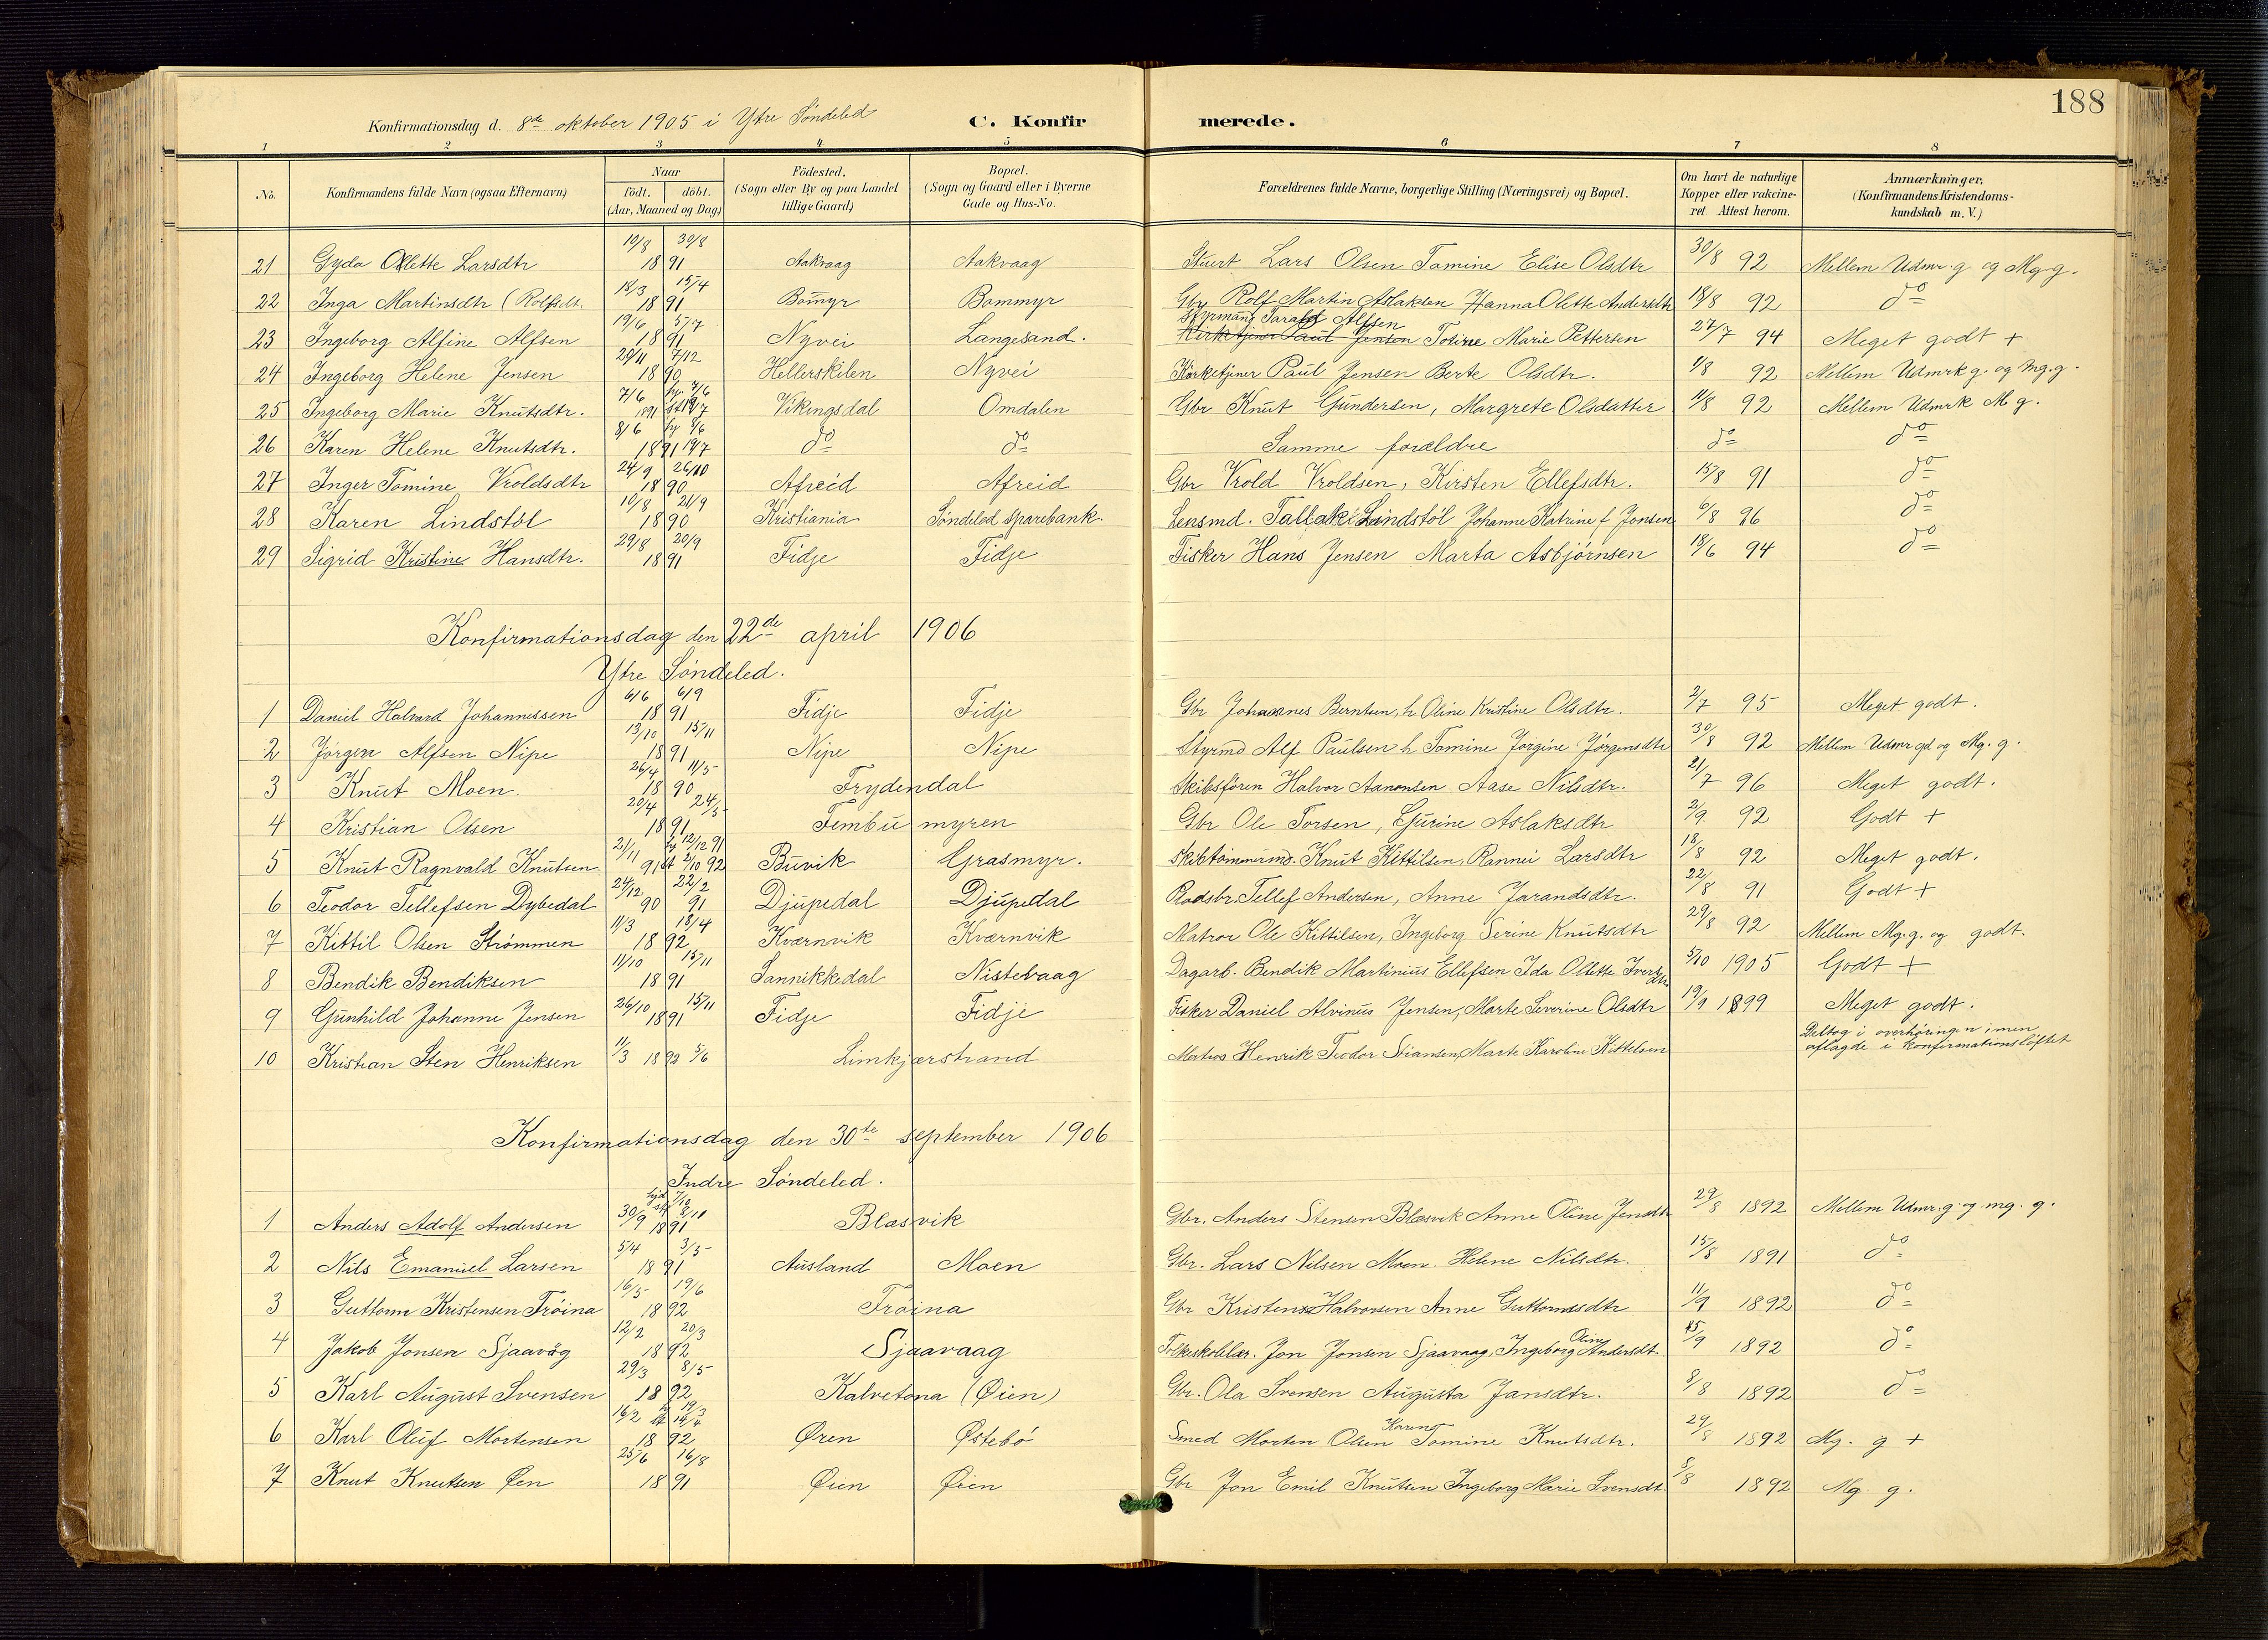 188
Konfirmationsdag d. 8de oktober 1905 i Ytre Søndeled
C. Konfirmerede.
1 2 3 4 5 6 7 8
No. Konfirmandens fulde Navn (ogsaa Efternavn) Naar födt. döbt. (Aar, Maaned og Dag) Födested. (Sogn eller By og paa Landet tillige Gaard) Bopæl. (Sogn og Gaard eller i Byerne Gade og Hus-No. Forældrenes fulde Navne, borgerlige Stilling (Næringsvei) og Bopæl. Om havt de naturlige Kopper eller vakcineret. Attest herom. Anmærkninger, (Konfirmandens Kristendomskundskab m. V.)
21 Gyda Olette Larsdtr 10/8 30/8 1891 Aakvaag Aakvaag Stuert Lars Olsen Tomine Elise Olsdtr 30/8 92 Mellem Udmr. g og Mg. g.
22 Inga Martinsdtr (Rolfsdt. 18/3 15/4 1891 Bommyr Bommyr Gbr Rolf Martin Aslaksen Hanna Olette Andersdtr 18/8 92 do
23 Ingeborg Alfine Alfsen 19/6 5/7 1891 Nyvei Langesand. Styrmand Tarald Alfsen Kirketjener Paul Jensen Tosine Marie Pettersen 27/7 94 Meget godt +
24 Ingeborg Helene Jensen 29/11 7/12 1890 Hellerskilen Nyvei Kirketjener Paul Jensen Berte Olsdtr. 1/8 92 Mellem Udmrk g. og Mg. g.
25 Ingeborg Marie Knutsdtr. 7/6 1891 19/7 Vikingsdal Omdalen Gbr Knut Gundersen, Margrete Olsdatter 11/8 92 Mellem Udmrk M g.
26 Karen Helene Knutsdtr. 8/6 1891 19/7 do do Samme forældre do do
27 Inger Tomine Vroldsdtr 24/9 26/10 1890 Afreid Afreid Gbr Vrold Vroldsen, Kirsten Ellefsdtr. 15/8 91 do
28 Karen Lindstøl 10/8 21/9 1890 Kristiania Søndeled Sparebank. Lensmd. Tallak Lindstøl Johanne Katrine f Jonsen 6/8 96 do
29 Sigrid Kristine Hansdtr. 29/8 20/9 1891 Fidje Fidje Fisker Hans Jensen Marta Asbjørnsen 18/6 94 do
Konfirmationsdag den 22de april 1906
Ytre Søndeled.
1 Daniel Halvard Johannessen 6/6 6/9 1891 Fidje Fidje Gbr Johannes Berntsen, h Oline Kristine Olsdtr. 2/7 95 Meget godt.
2 Jørgen Alfsen Nipe 13/10 15/11 1891 Nipe Nipe Styrmd Alf Paulsen h Tomine Jørgine Jørgensdtr 30/8 92 Mellem Udmr gd og Mg. g.
3 Knut Moen. 26/4 11/5 1890 Frydendal Skibsføren Halvor Aanonsen Aase Nilsdtr. 21/7 96 Meget godt.
4 Kristian Olsen 20/4 24/5 1891 Fembumyren Gbr Ole Torsen, Gurine Aslaksdtr 2/9 92 Godt +
5 Knut Ragnvald Knutsen 21/11 91 hj 12/12 91 st 2/10 92 Buvik Grasmyr. Skibtømmermd. Knut Kittilsen, Rannei Larsdtr 18/8 92 Meget godt.
6 Teodor Tellefsen Dybedal 24/12 90 22/2 91 Djupedal Djupedal Rodsbr. Tellef Andersen, Anne Jarandsdtr. 22/8 91 Godt +
7 Kittil Olsen Strømmen 11/3 18/4 1892 Kværnvik Kværnvik Matros Ole Kittilsen, Ingeborg Serine Knutsdtr 29/8 92 Mellem Mg. g. og godt.
8 Bendik Bendiksen 11/10 15/11 1891 Sannikkedal Nistevaag Dagarb. Bendik Martinius Ellefsen Ida Olette Iversdtr 5/10 1905 Godt +
9 Gunhild Johanne Jensen 26/10 15/11 1891 Fidje Fidje Fisker Daniel Alvinus Jensen, Marte Severine Olsdtr 19/9 1899 Meget godt.
10 Kristian Sten Henriksen 11/3 1892 5/6 Limkjærstrand Matros Henrik Teodor Stiansen, Marte Karoline Kittelsen Deltog i overhøringen men aflagde i konfirmationsløftet
Konfirmationsdag den 30te september 1906
Indre Søndeled.
1 Anders Adolf Andersen 30/9 1891 8/11 Blæsvik Gbr. Anders Stensen Blæsvik Anne Oline Jensdtr 29/8 1892 Mellem Udmr. g. og mg. g.
2 Nils Emanuel Larsen 5/4 3/5 1891 Ausland Moen Gbr. Lars Nilsen Moen. Helene Nilsdtr. 15/8 1891 do
3 Guttorm Kristensen Trøina 16/5 19/6 1892 Trøina Gbr Kristen Halvorsen Anne Guttormsdtr 11/9 1892 do
4 Jakob Jonsen Sjaavåg 12/2 20/3 1892 Sjaavaag Folkeskolelær. Jon Jonsen Sjaavaag, Ingeborg Oline Andersdt. 15/9 1892 do
5 Karl August Svensen 29/3 8/5 1892 Kalvetona (Øien) Gbr. Ola Svensen Augusta Jansdtr. 8/8 1892 do
6 Karl Oluf Mortensen 16/2 hj 19/3 st 14/4 1892 Øren Østebø Smed Morten Olsen Karen Tomine Knutsdtr. 29/8 1892 Mg. g +
7 Knut Knutsen Øen 25/6 16/8 1891 Øien Øien Gbr Jon Emil Knutsen Ingeborg Marie Svensdt. 8/8 1892 Mg. g.